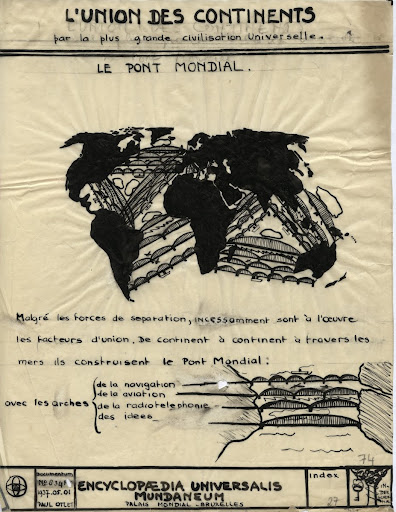 L'UNION DES CONTINENTS
par la plus grande civilisation Universelle.
LE PONT MONDIAL.
Malgré les forces de separation, incessamment sont à l'œuvre
les facteurs d'union. De continent à continent à travers les
mers ils construisent le Pont Mondial:
avec les arches
de la navigation
de la aviation
de la radiotelephonie
des idées
74
Documentum
1937.05.01
PAUL OTLET
ENCYCLOPÆDIA UNIVERSALIS
MUNDANEUM
PALAIS MONDIAL-BRUXELLES
Index
27